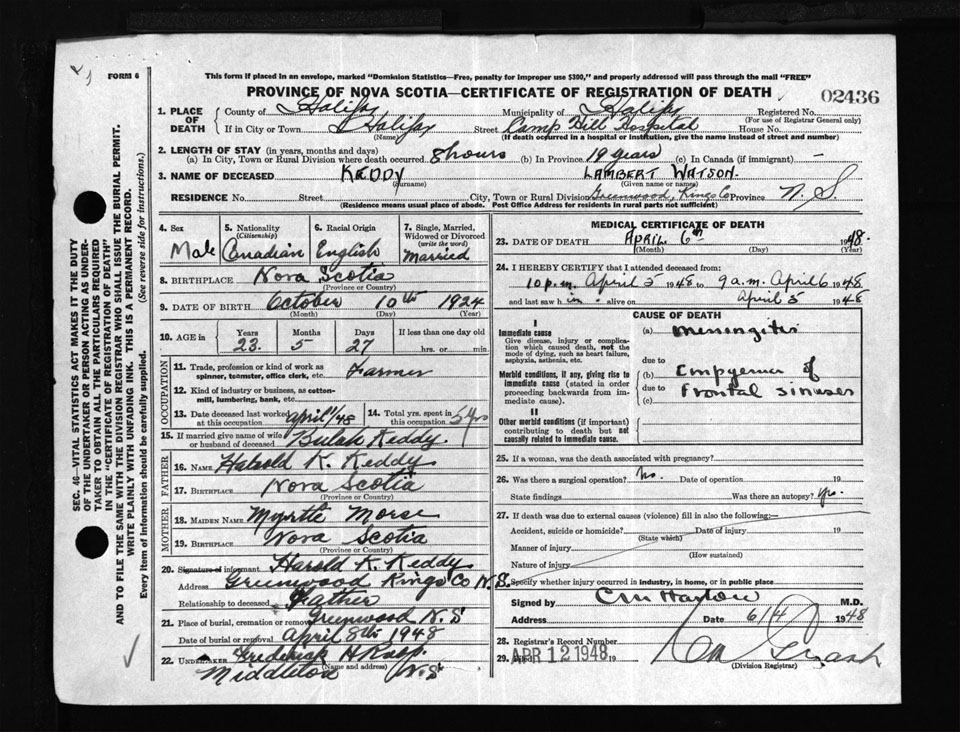 FORM 6
This form if placed in an envelope, marked "Dominion Statistics—Free, penalty for improper use $300," and properly addressed will pass through the mail "FREE"
PROVINCE OF NOVA SCOTIA—CERTIFICATE OF REGISTRATION OF DEATH
02436
1. PLACE OF DEATH
County of Halifax Municipality of Halifax Registered No.
(For use of Registrar General only)
If in City or Town Halifax Street Camp Hill Hospital House No.
(Name) (If death occurred in a hospital or institution, give the name instead of street and number)
2. LENGTH OF STAY (in years, months and days)
(a) In City, Town or Rural Division where death occurred 8 hours (b) In Province 19 years (c) In Canada (if immigrant) —
3. NAME OF DECEASED KEDDY LAMBERT WATSON.
(Surname) (Given name or names)
RESIDENCE No. Street City, Town or Rural Division Greenwood, Kings Co Province N. S.
(Residence means usual place of abode. Post Office Address for residents in rural parts not sufficient)
4. Sex
Male
5. Nationality
(Citizenship)
Canadian
6. Racial Origin
English
7. Single, Married, Widowed or Divorced
(write the word)
Married
8. BIRTHPLACE Nova Scotia
(Province or Country)
9. DATE OF BIRTH October 10th 1924
(Month) (Day) (Year)
10. AGE in
Years Months Days If less than one day old
23. 5 27 hrs. or min.
OCCUPATION
11. Trade, profession or kind of work as spinner, teamster, office clerk, etc. Farmer
12. Kind of industry or business, as cotton-mill, lumbering, bank, etc.
13. Date deceased last worked at this occupation April 1/48
14. Total yrs. spent in this occupation 5 yrs
15. If married give name of wife or husband of deceased Bulah Keddy.
FATHER
16. NAME Harold K. Keddy
17. BIRTHPLACE Nova Scotia
(Province or Country)
MOTHER
18. MAIDEN NAME Myrtle Morse
19. BIRTHPLACE Nova Scotia
(Province or Country)
20. Signature of informant Harold K. Keddy
Address Greenwood Kings Co N.S.
Relationship to deceased Father
21. Place of burial, cremation or removal Greenwood N.S
Date of burial or removal April 8th 1948
22. UNDERTAKER Frederick H
(Name and address)
Middleton N.S
MEDICAL CERTIFICATE OF DEATH
23. DATE OF DEATH APRIL 6th 1948.
(Month) (Day) (Year)
24. I HEREBY CERTIFY that I attended deceased from:
10 p.m. April 5 1948 to 9 a.m. April 6 1948
and last saw him alive on April 5 1948
CAUSE OF DEATH
I
Immediate cause
Give disease, injury or complication which caused death, not the mode of dying, such as heart failure, asphyxia, asthenia, etc.
(a) Meningitis
due to
Morbid conditions, if any, giving rise to immediate cause (stated in order proceeding backwards from immediate cause).
(b) Empyema of
due to Frontal sinuses
(c)
II
Other morbid conditions (if important) contributing to death but not causally related to immediate cause.
25. If a woman, was the death associated with pregnancy?
26. Was there a surgical operation? No. Date of operation 19
State findings Was there an autopsy? Yes.
27. If death was due to external causes (violence) fill in also the following:—
Accident, suicide or homicide? Date of injury 19
(State which)
Manner of injury
(How sustained)
Nature of injury
Specify whether injury occurred in industry, in home, or in public place
Signed by C M Harlow M.D.
Address Date 6/4 1948
28. Registrar's Record Number
29. APR 12 1948
(Division Registrar)
SEC. 46—VITAL STATISTICS ACT MAKES IT THE DUTY OF THE UNDERTAKER OR PERSON ACTING AS UNDERTAKER TO OBTAIN ALL THE PARTICULARS REQUIRED IN THE "CERTIFICATE OF REGISTRATION OF DEATH" AND TO FILE THE SAME WITH THE DIVISION REGISTRAR WHO SHALL ISSUE THE BURIAL PERMIT.
WRITE PLAINLY WITH UNFADING INK. THIS IS A PERMANENT RECORD.
Every item of information should be carefully supplied. (See reverse side for instructions.)